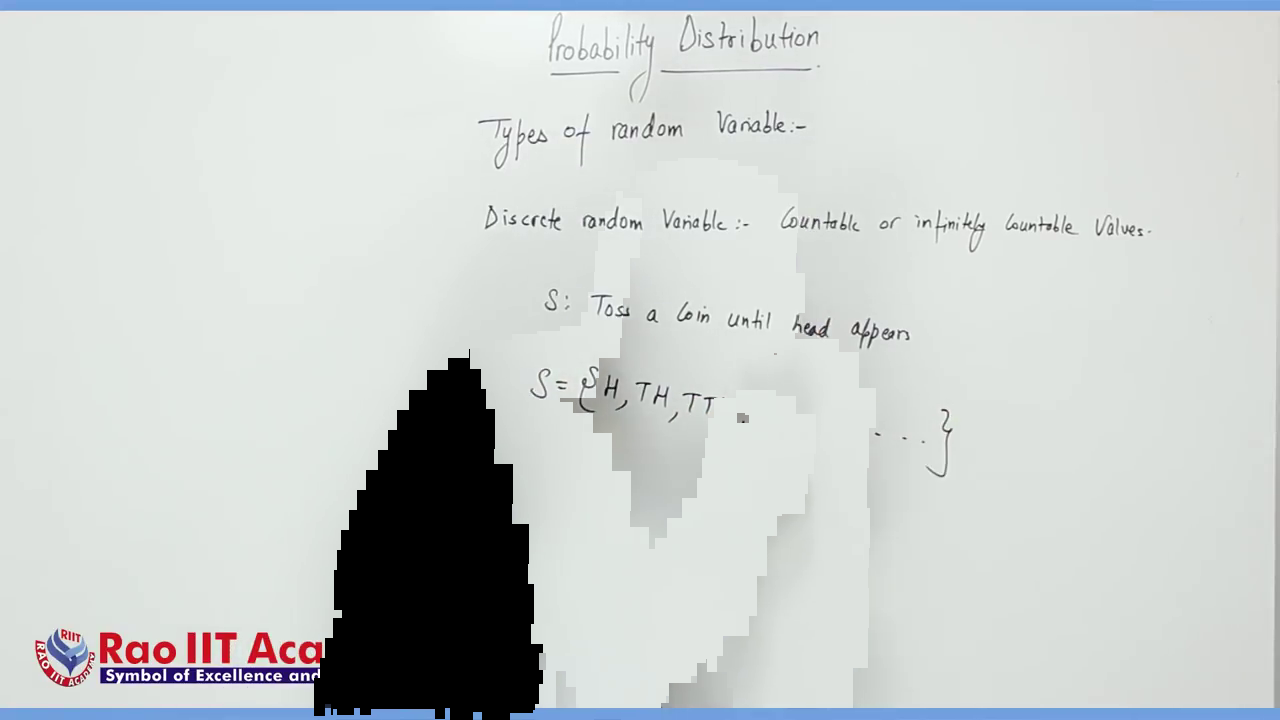 Probability Distribution
Types of random Variable:-
Discrete random Variable:- Countable or infinitely Countable Values.
S: Toss a Coin until head appears
S = { H, TH, TT ....}
RIIT
RAO IIT ACADEMY
Rao IIT Aca
Symbol of Excellence and